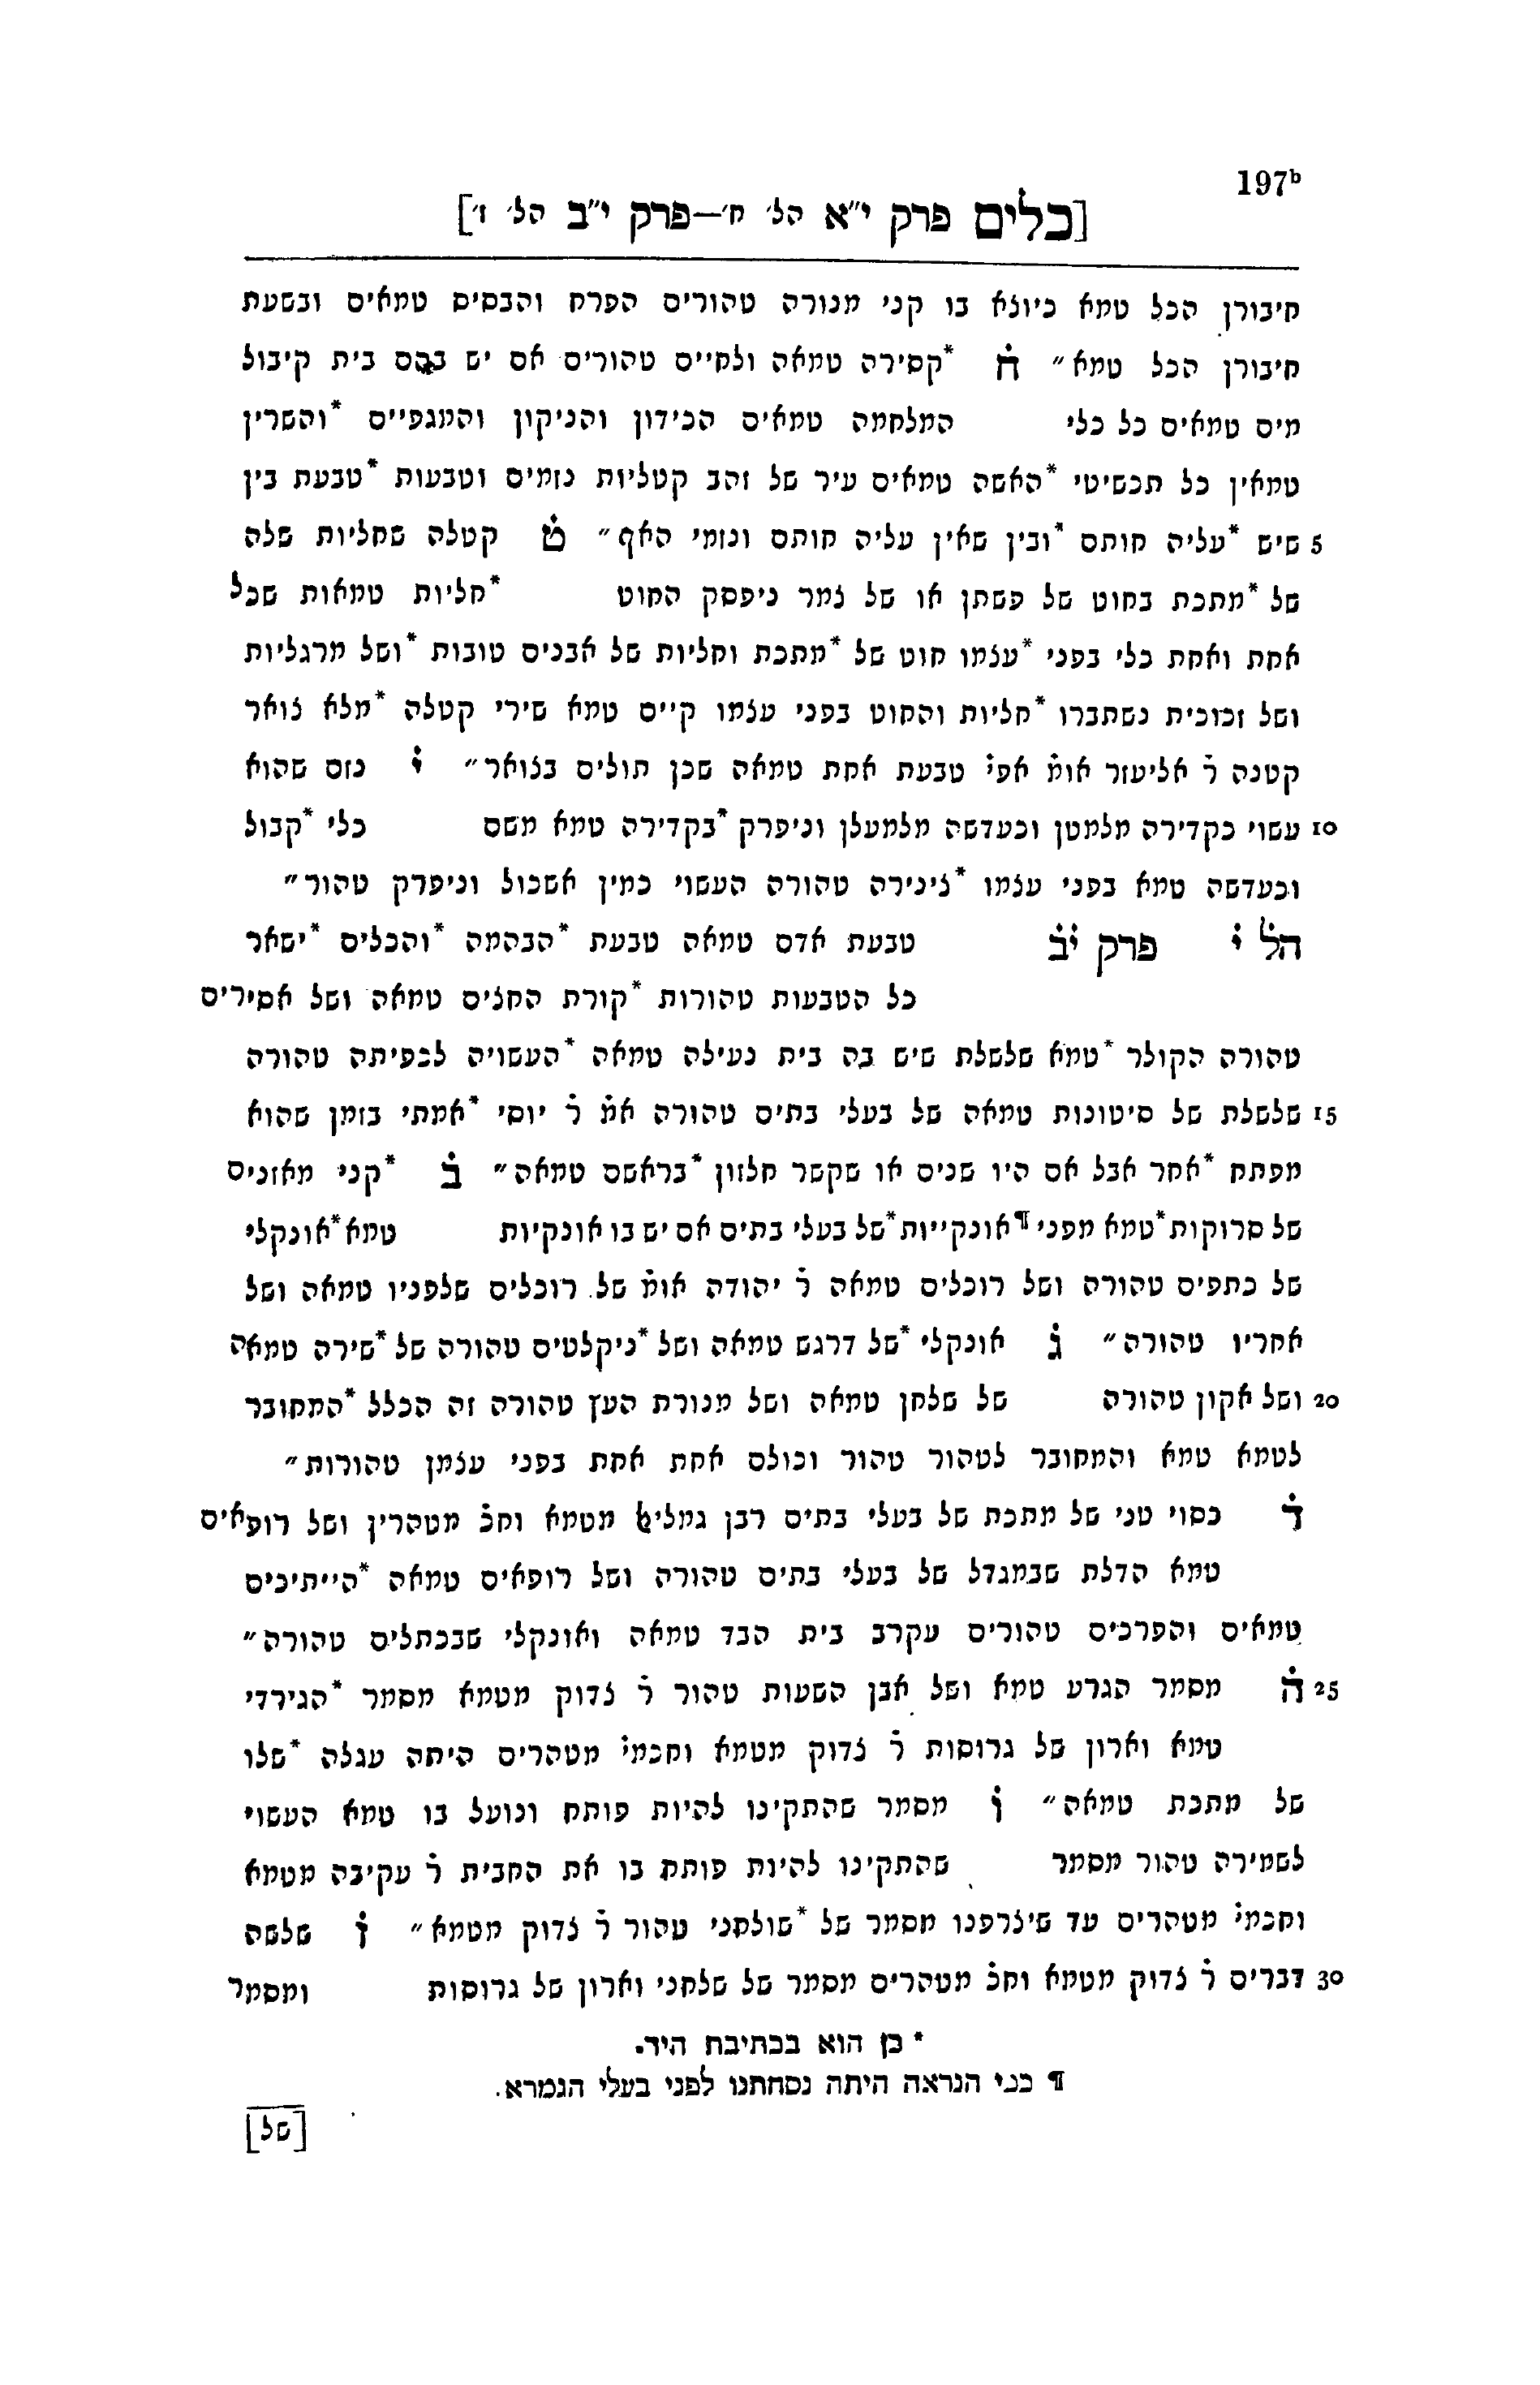 197ᵇ
[כלים פרק י״א הל׳ ח׳—פרק י״ב הל׳ ז׳]
חיבורן הכל טמא כיוצא בו קני מנורה טהורים הפרח והבסיס טמאים ובשעת
חיבורן הכל טמא״ ח̇ *קסירה טמאה ולחיים טהורים אם יש בהם בית קיבול
מים טמאים כל כלי המלחמה טמאים הכידון והניקון והמגפיים *והשרין
טמאין כל תכשיטי *האשה טמאים עיר של זהב קטליות נזמים וטבעות *טבעת בין
5 שיש *עליה חותם *ובין שאין עליה חותם ונזמי האף״ ט̇ קטלה שחליות שלה
של *מתכת בחוט של פשתן או של צמר ניפסק החוט *חליות טמאות שכל
אחת ואחת כלי בפני *עצמו חוט של *מתכת וחליות של אבנים טובות *ושל מרגליות
ושל זכוכית נשתברו *חליות והחוט בפני עצמו קיים טמא שירי קטלה *מלא צואר
קטנה ר̇ אליעזר אומ̇ אפי̇ טבעת אחת טמאה שכן תולים בצואר״ י̇ נזם שהוא
10 עשוי כקדירה מלמטן וכעדשה מלמעלן וניפרק *בקדירה טמא משם כלי *קבול
וכעדשה טמא בפני עצמו *צינירה טהורה העשוי כמין אשכול וניפרק טהור״
הל̇ י̇ פרק י̇ב̇ טבעת אדם טמאה טבעת *הבהמה *והכלים *ישאר
כל הטבעות טהורות *קורת החצים טמאה ושל אסירים
טהורה הקולר *טמא שלשלת שיש בה בית נעילה טמאה *העשויה לכפיתה טהורה
15 שלשלת של סיטונות טמאה של בעלי בתים טהורה אמ̇ ר̇ יוסי *אמתי בזמן שהוא
מפתח *אחר אבל אם היו שנים או שקשר חלזון *בראשם טמאה״ ב̇ *קני מאזנים
של סרוקות *טמא מפני ¶אונקייות *של בעלי בתים אם יש בו אונקיות טמא *אונקלי
של כתפים טהורה ושל רוכלים טמאה ר̇ יהודה אומ̇ של רוכלים שלפניו טמאה ושל
אחריו טהורה״ ג̇ אונקלי *של דרגש טמאה ושל *ניקלטים טהורה של *שירה טמאה
20 ושל אקון טהורה של שלחן טמאה ושל מנורת העץ טהורה זה הכלל *המחובר
לטמא טמא והמחובר לטהור טהור וכולם אחת אחת בפני עצמן טהורות״
ד̇ כסוי טני של מתכת של בעלי בתים רבן גמליאל מטמא וחכ̇ מטהרין ושל רופאים
טמא הדלת שבמגדל של בעלי בתים טהורה ושל רופאים טמאה *הייתיכים
טמאים והפרכים טהורים עקרב בית הבד טמאה ואונקלי שבכתלים טהורה״
25 ה̇ מסמר הגרע טמא ושל אבן השעות טהור ר̇ צדוק מטמא מסמר *הגירדי
טמא וארון של גרוסות ר̇ צדוק מטמא וחכמי̇ מטהרים היתה עגלה *שלו
של מתכת טמאה״ ו̇ מסמר שהתקינו להיות פותח ונועל בו טמא העשוי
לשמירה טהור מסמר שהתקינו להיות פותח בו את החבית ר̇ עקיבה מטמא
וחכמי̇ מטהרים עד שיצרפנו מסמר של *שולחני טהור ר̇ צדוק מטמא״ ז̇ שלשה
30 דברים ר̇ צדוק מטמא וחכ̇ מטהרים מסמר של שלחני וארון של גרוסות ומסמר
* כן הוא בכתיבת היד.
¶ כפי הנראה היתה נסחתנו לפני בעלי הגמרא.
[של]